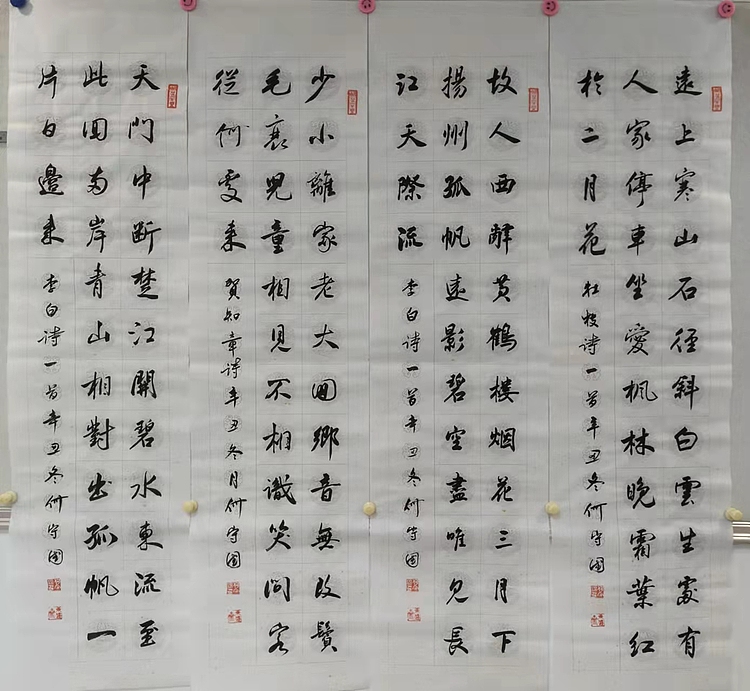 遠上寒山石径斜白雲生處有
人家停車坐愛枫林晚霜葉红
於二月花
杜牧诗一首辛丑冬何守國
故人西辭黄鶴楼烟花三月下
揚州孤帆遠影碧空盡唯見長
江天際流
李白诗一首辛丑冬何守國
少小離家老大囬鄉音無改鬢
毛衰兒童相見不相識笑問客
從何處来
賀知章诗辛丑冬月何守國
天門中断楚江開碧水東流至
此囬两岸青山相對出孤帆一
片日邊来
李白诗一首辛丑冬何守國